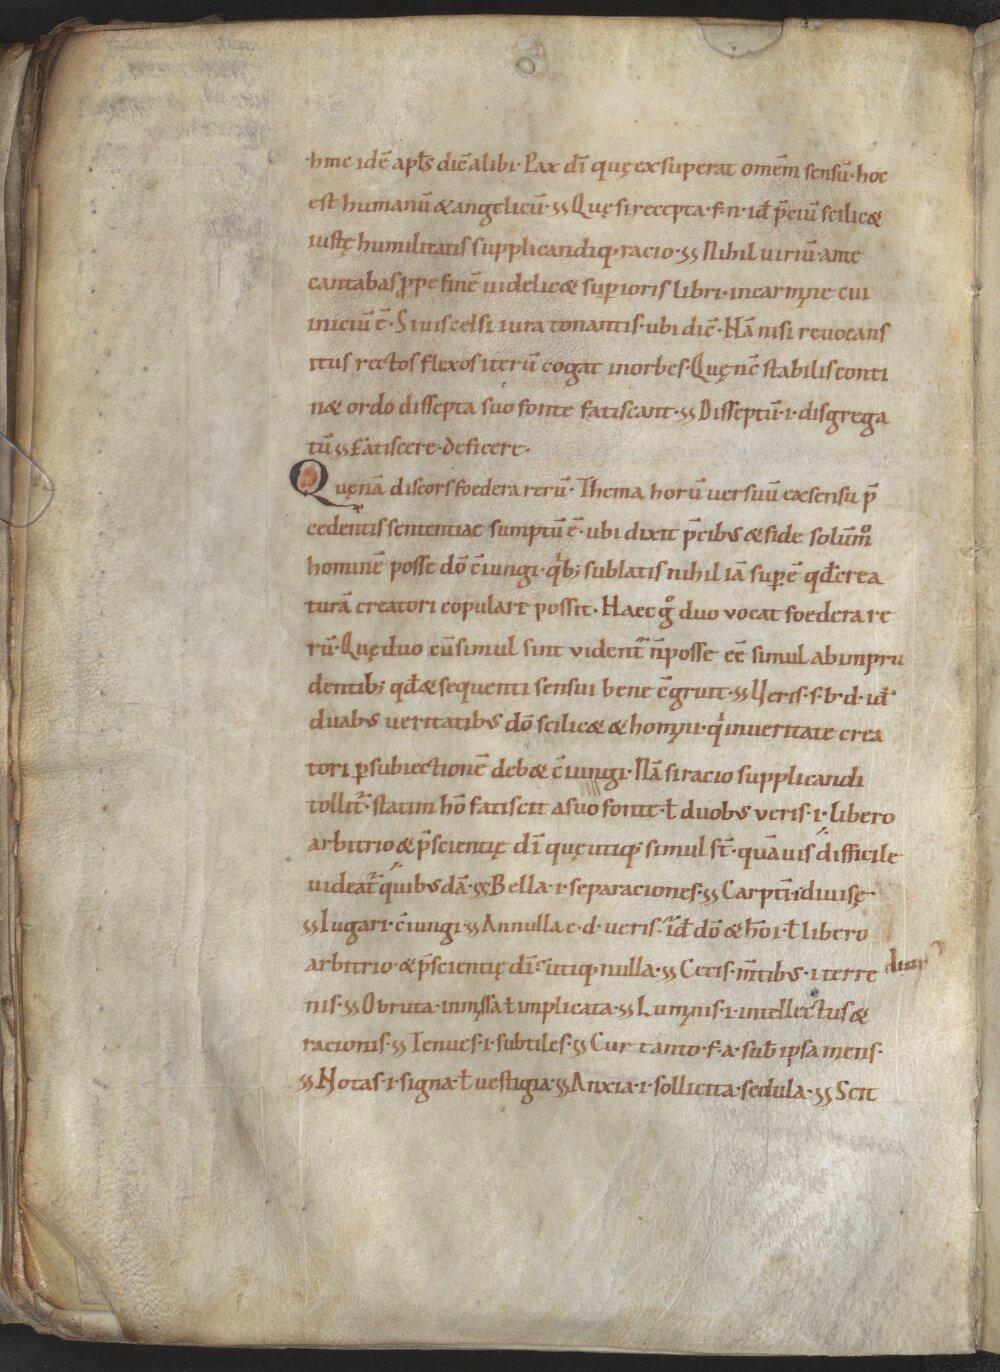 hinc idē apl̄s dic̄ alibi · Pax dī quę exsuperat omēm sensū · hoc
est humanū & angelicū · ſſ Quę si recepta · f · n · id̄ p̄ciū scilic&
iustę humilitatis supplicandiq; racio · ſſ Nihil uiriū · ante
cantabas ꝓpe finē uidelic& superioris libri · in carmine cui
iniciū ē · Si uis celsi iura tonantis · ubi dic̄ · Hā nisi reuocans
itus rectos flexos iterū cogat in orbes · Quę nc̄ stabilis conti
n& ordo dissepta suo fonte fatiscant · ſſ Disseptū · i · disgrega
tū ſſ Fatiscere · deficere ·
Quęnā discors foedera rerū · Thema horū uersuū ex sensu p̄
cedentis sententiae sumptū ē · ubi dixit p̄cibus & fide solūm̊
hominē posse dō c̄iungi · qͥb; sublatis nihil iā supē qd̄ crea
turā creatori copulare possit · Haec g̊ duo vocat foedera re
rū · Quę duo cū simul sint videnť n̄ posse eē simul ab impru
dentib; qd̄ & sequenti sensui bene c̄gruit · ſſ Veris · s · b · d · id̄
duabus ueritatibus dō scilic& & homini · qͥ in ueritate crea
tori ꝑ subiectionē deb& c̄iungi · Nā si racio supplicandi
tollit̄ · statim hō fatiscit a suo fonte · ł duobus veris · i · libero
arbitrio & p̄scientię dī quę utiq; simul st̄ · quāuis difficile
uideat̄ quibusdā · ſſ Bella · i · separaciones · ſſ Carptī · i diuisę
ſſ Iugari · c̄iungi · ſſ An nulla e · d · ueris · id̄ dō & hōi · ł libero
arbitrio · & p̄scientię dī · utiq; nulla · ſſ Cecis · m̄tibus · i terre
nis · ſſ Obruta · inmissa ł implicata · ſſ Luminis · i · intellectus &
racionis · ſſ Tenues · i · subtiles · ſſ Cur tanto · f · a · sub̄ ipsa mens ·
ſſ Notas · i · signa · ł uestigia · ſſ Anxia · i · sollicita · sedula · ſſ Scit